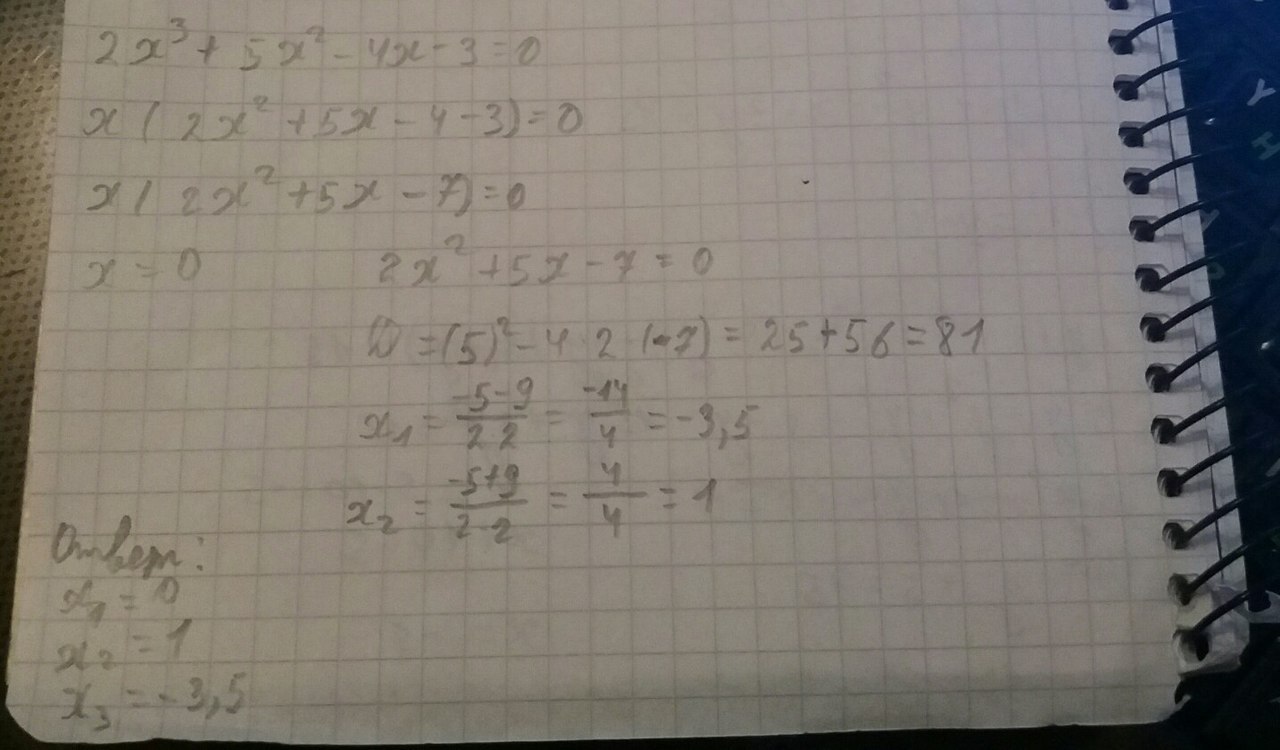 2x³ + 5x² - 4x - 3 = 0
x ( 2x² + 5x - 4 - 3) = 0
x ( 2x² + 5x - 7) = 0
x = 0 2x² + 5x - 7 = 0
D = (5)² - 4 · 2 · (-7) = 25 + 56 = 81
x₁ = \frac{-5-9}{2·2} = \frac{-14}{4} = -3,5
x₂ = \frac{-5+9}{2·2} = \frac{4}{4} = 1
Ответ:
x₁ = 0
x₂ = 1
x₃ = -3,5
Y
H